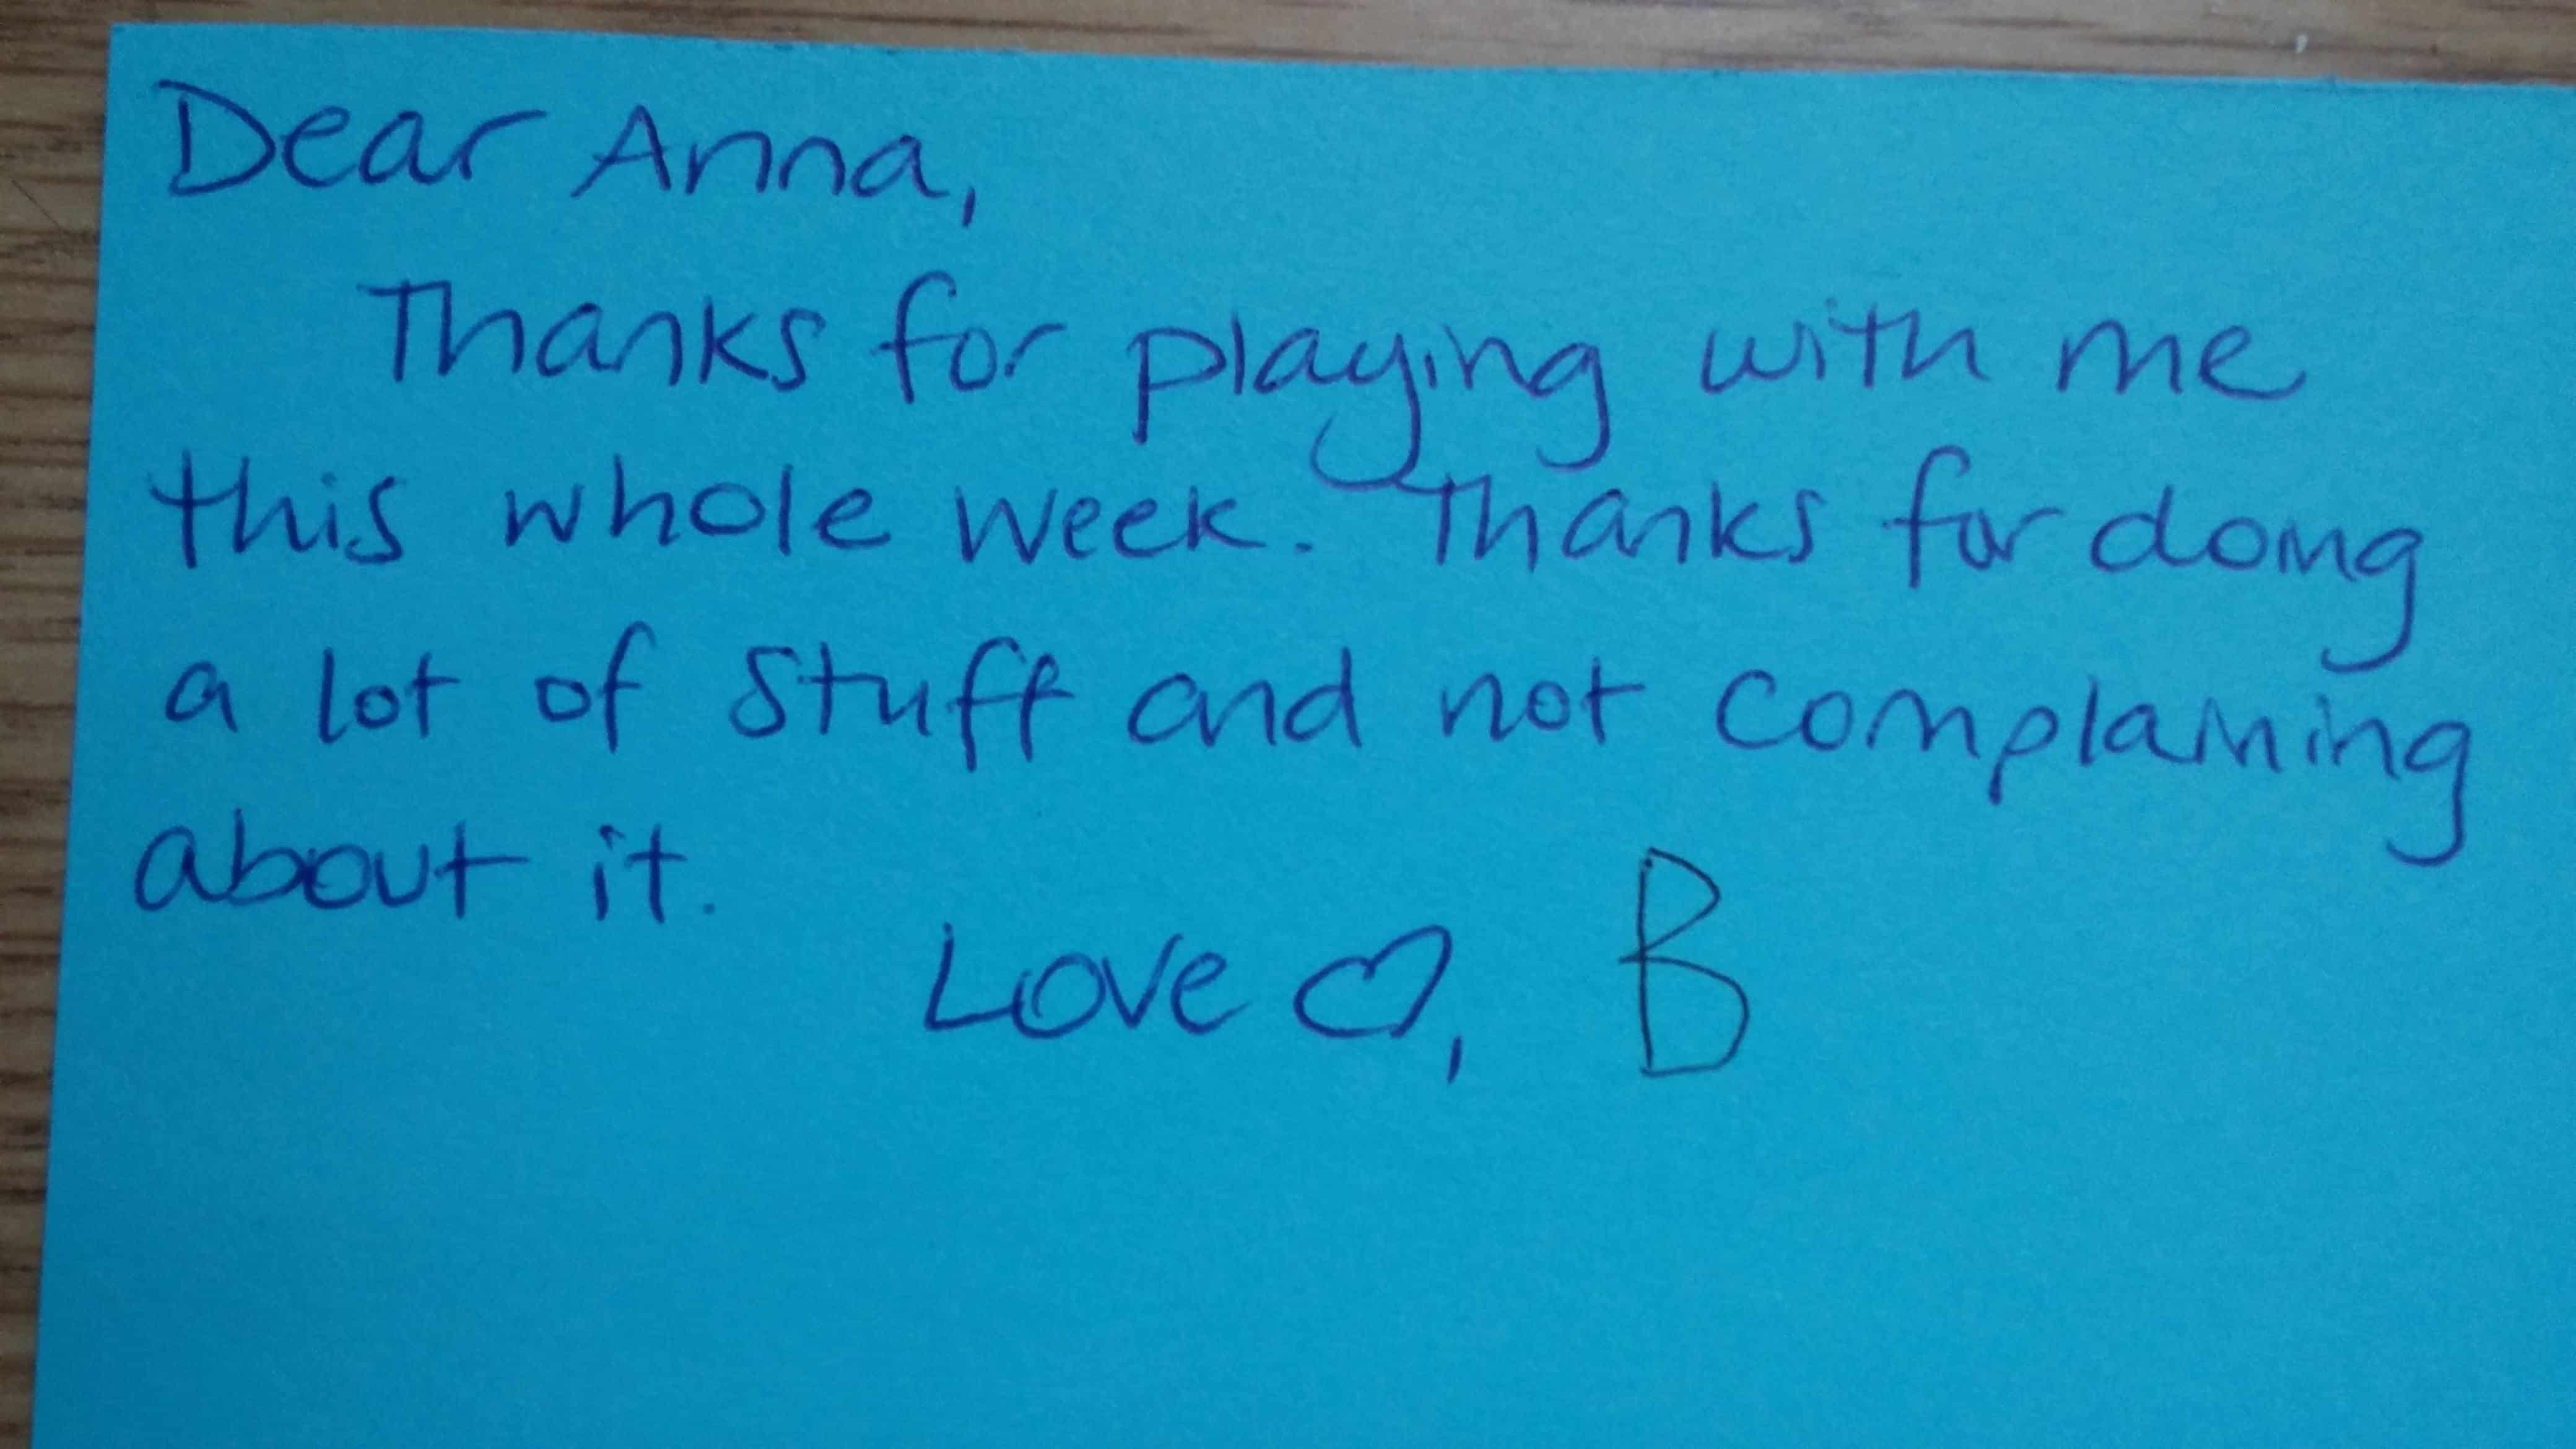 Dear Anna,
Thanks for playing with me
this whole week. Thanks for doing
a lot of stuff and not complaining
about it.
Love ♡, B